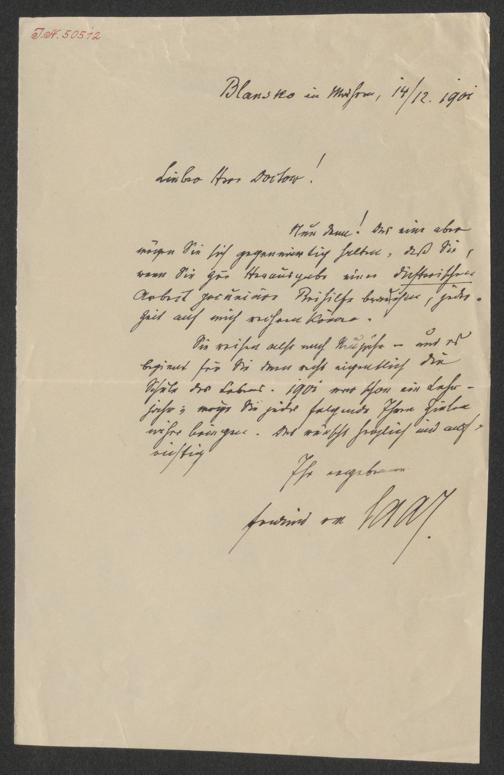 I.N. 50512
Blansko in Mähren, 14/12. 1901
Lieber Herr Doctor!
Nun denn! Das eine aber
mögen Sie sich gegenwärtig halten, daß Sie,
wenn Sie zur Herausgabe einer dichterischen
Arbeit pecuniäre Beihilfe brauchen, jeder-
zeit auf mich rechnen können.
Sie reisen also nach Neujahr – und es
beginnt für Sie dann recht eigentlich die
Schule des Lebens. 1901 war schon ein Lehr-
jahr; möge Sie jedes folgende Ihren Zielen
näher bringen. Das wünscht herzlich und auf-
richtig
Ihr ergebener
Ferdinand von Saar.